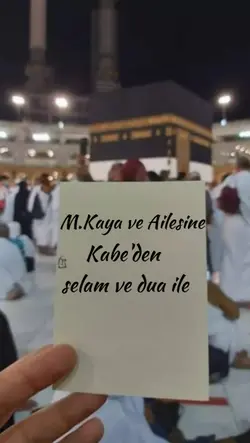 M.Kaya ve Ailesine
Kabe'den
selam ve dua ile